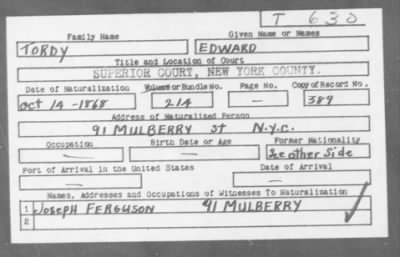 T 630
Family Name Given Name or Names
TORDY EDWARD
Title and Location of Court
SUPERIOR COURT, NEW YORK COUNTY.
Date of Naturalization Volume or Bundle No. Page No. Copy of Record No.
Oct 14-1868 214 — 389
Address of Naturalized Person
91 MULBERRY St N.Y.C.
Occupation Birth Date or Age Former Nationality
— — See other side
Port of Arrival in the United States Date of Arrival
— —
Names, Addresses and Occupations of Witnesses To Naturalization
1 JOSEPH FERGUSON 91 MULBERRY
2